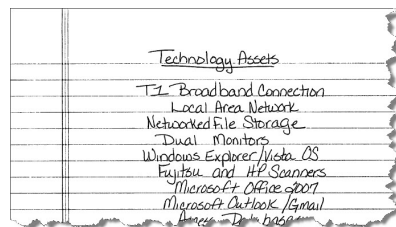 Technology Assets
T1 Broadband Connection
Local Area Network
Networked File Storage
Dual Monitors
Windows Explorer/Vista OS
Fujitsu and HP Scanners
Microsoft Office 2007
Microsoft Outlook/Gmail
Access Database